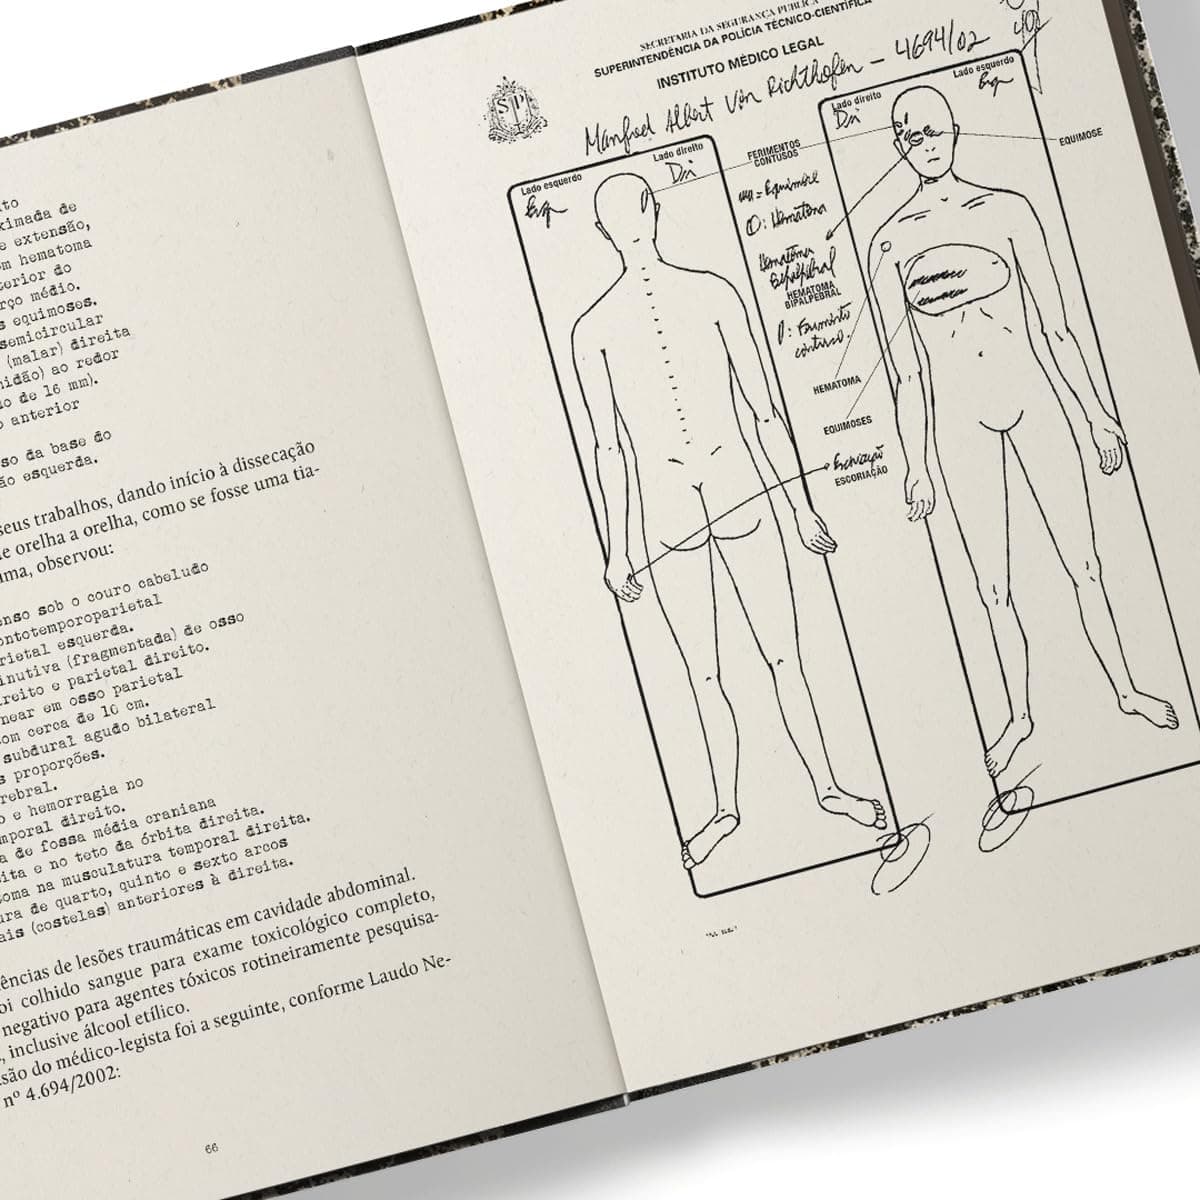 ximada de
e extensão,
m hematoma
terior do
rço médio.
s equimoses.
semicircular
(malar) direita
nidão) ao redor
io de 16 mm).
o anterior
so da base do
ão esquerda.
seus trabalhos, dando início à dissecação
e orelha a orelha, como se fosse uma tia-
ima, observou:
enso sob o couro cabeludo
ontotemporoparietal
rietal esquerda.
inutiva (fragmentada) de osso
ireito e parietal direito.
near em osso parietal
om cerca de 10 cm.
subdural agudo bilateral
s proporções.
rebral.
o e hemorragia no
mporal direito.
a de fossa média craniana
ita e no teto da órbita direita.
toma na musculatura temporal direita.
ura de quarto, quinto e sexto arcos
ais (costelas) anteriores à direita.
ências de lesões traumáticas em cavidade abdominal.
oi colhido sangue para exame toxicológico completo,
negativo para agentes tóxicos rotineiramente pesquisa-
, inclusive álcool etílico.
são do médico-legista foi a seguinte, conforme Laudo Ne-
nº 4.694/2002:
66
SECRETARIA DA SEGURANÇA PUBLICA
SUPERINTENDÊNCIA DA POLÍCIA TÉCNICO-CIENTÍFICA
INSTITUTO MÉDICO LEGAL
Manfred Albert Von Richthofen – 4694/02
SPTC
Lado esquerdo
Esq
Lado direito
Dir
FERIMENTOS
CONTUSOS
= Equimose
: Hematoma
Hematoma
Bipalpebral
HEMATOMA
BIPALPEBRAL
: Ferimento
contuso.
HEMATOMA
EQUIMOSES
Escoriação
ESCORIAÇÃO
Lado direito
Dir
Lado esquerdo
Esq
EQUIMOSE